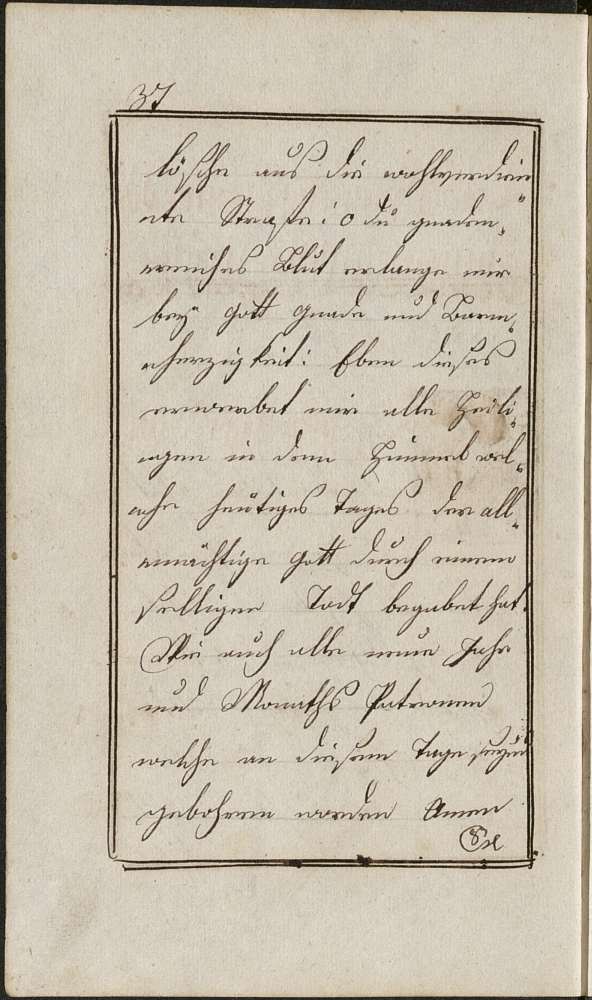 37
lösche aus die wohlverdien„
nte Straffe: o du gnaden„
nreiches Blut erlange mir
bey gott gnade und Barm„
mherzigkeit: Eben dieses
erwerbet mir alle Heili„
igen in dem Himmel wel„
lche heutiges Tages der all„
lmächtige gott durch einem
selligen Todt begabet hat.
Wie auch alle meine Jahr
und Monaths Patronen
welche an diesem Tage seynd
gebohren worden Amen